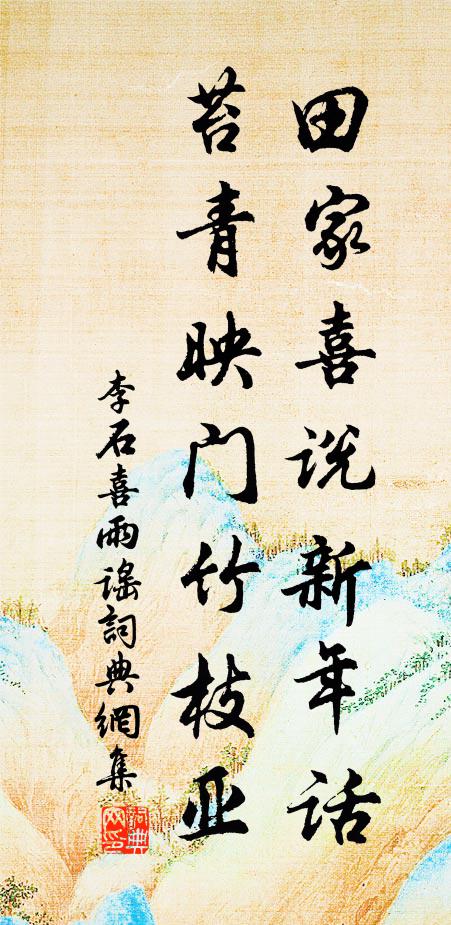 田家喜说新年话
苔青映门竹枝亚
李石喜雨谣詞典網集